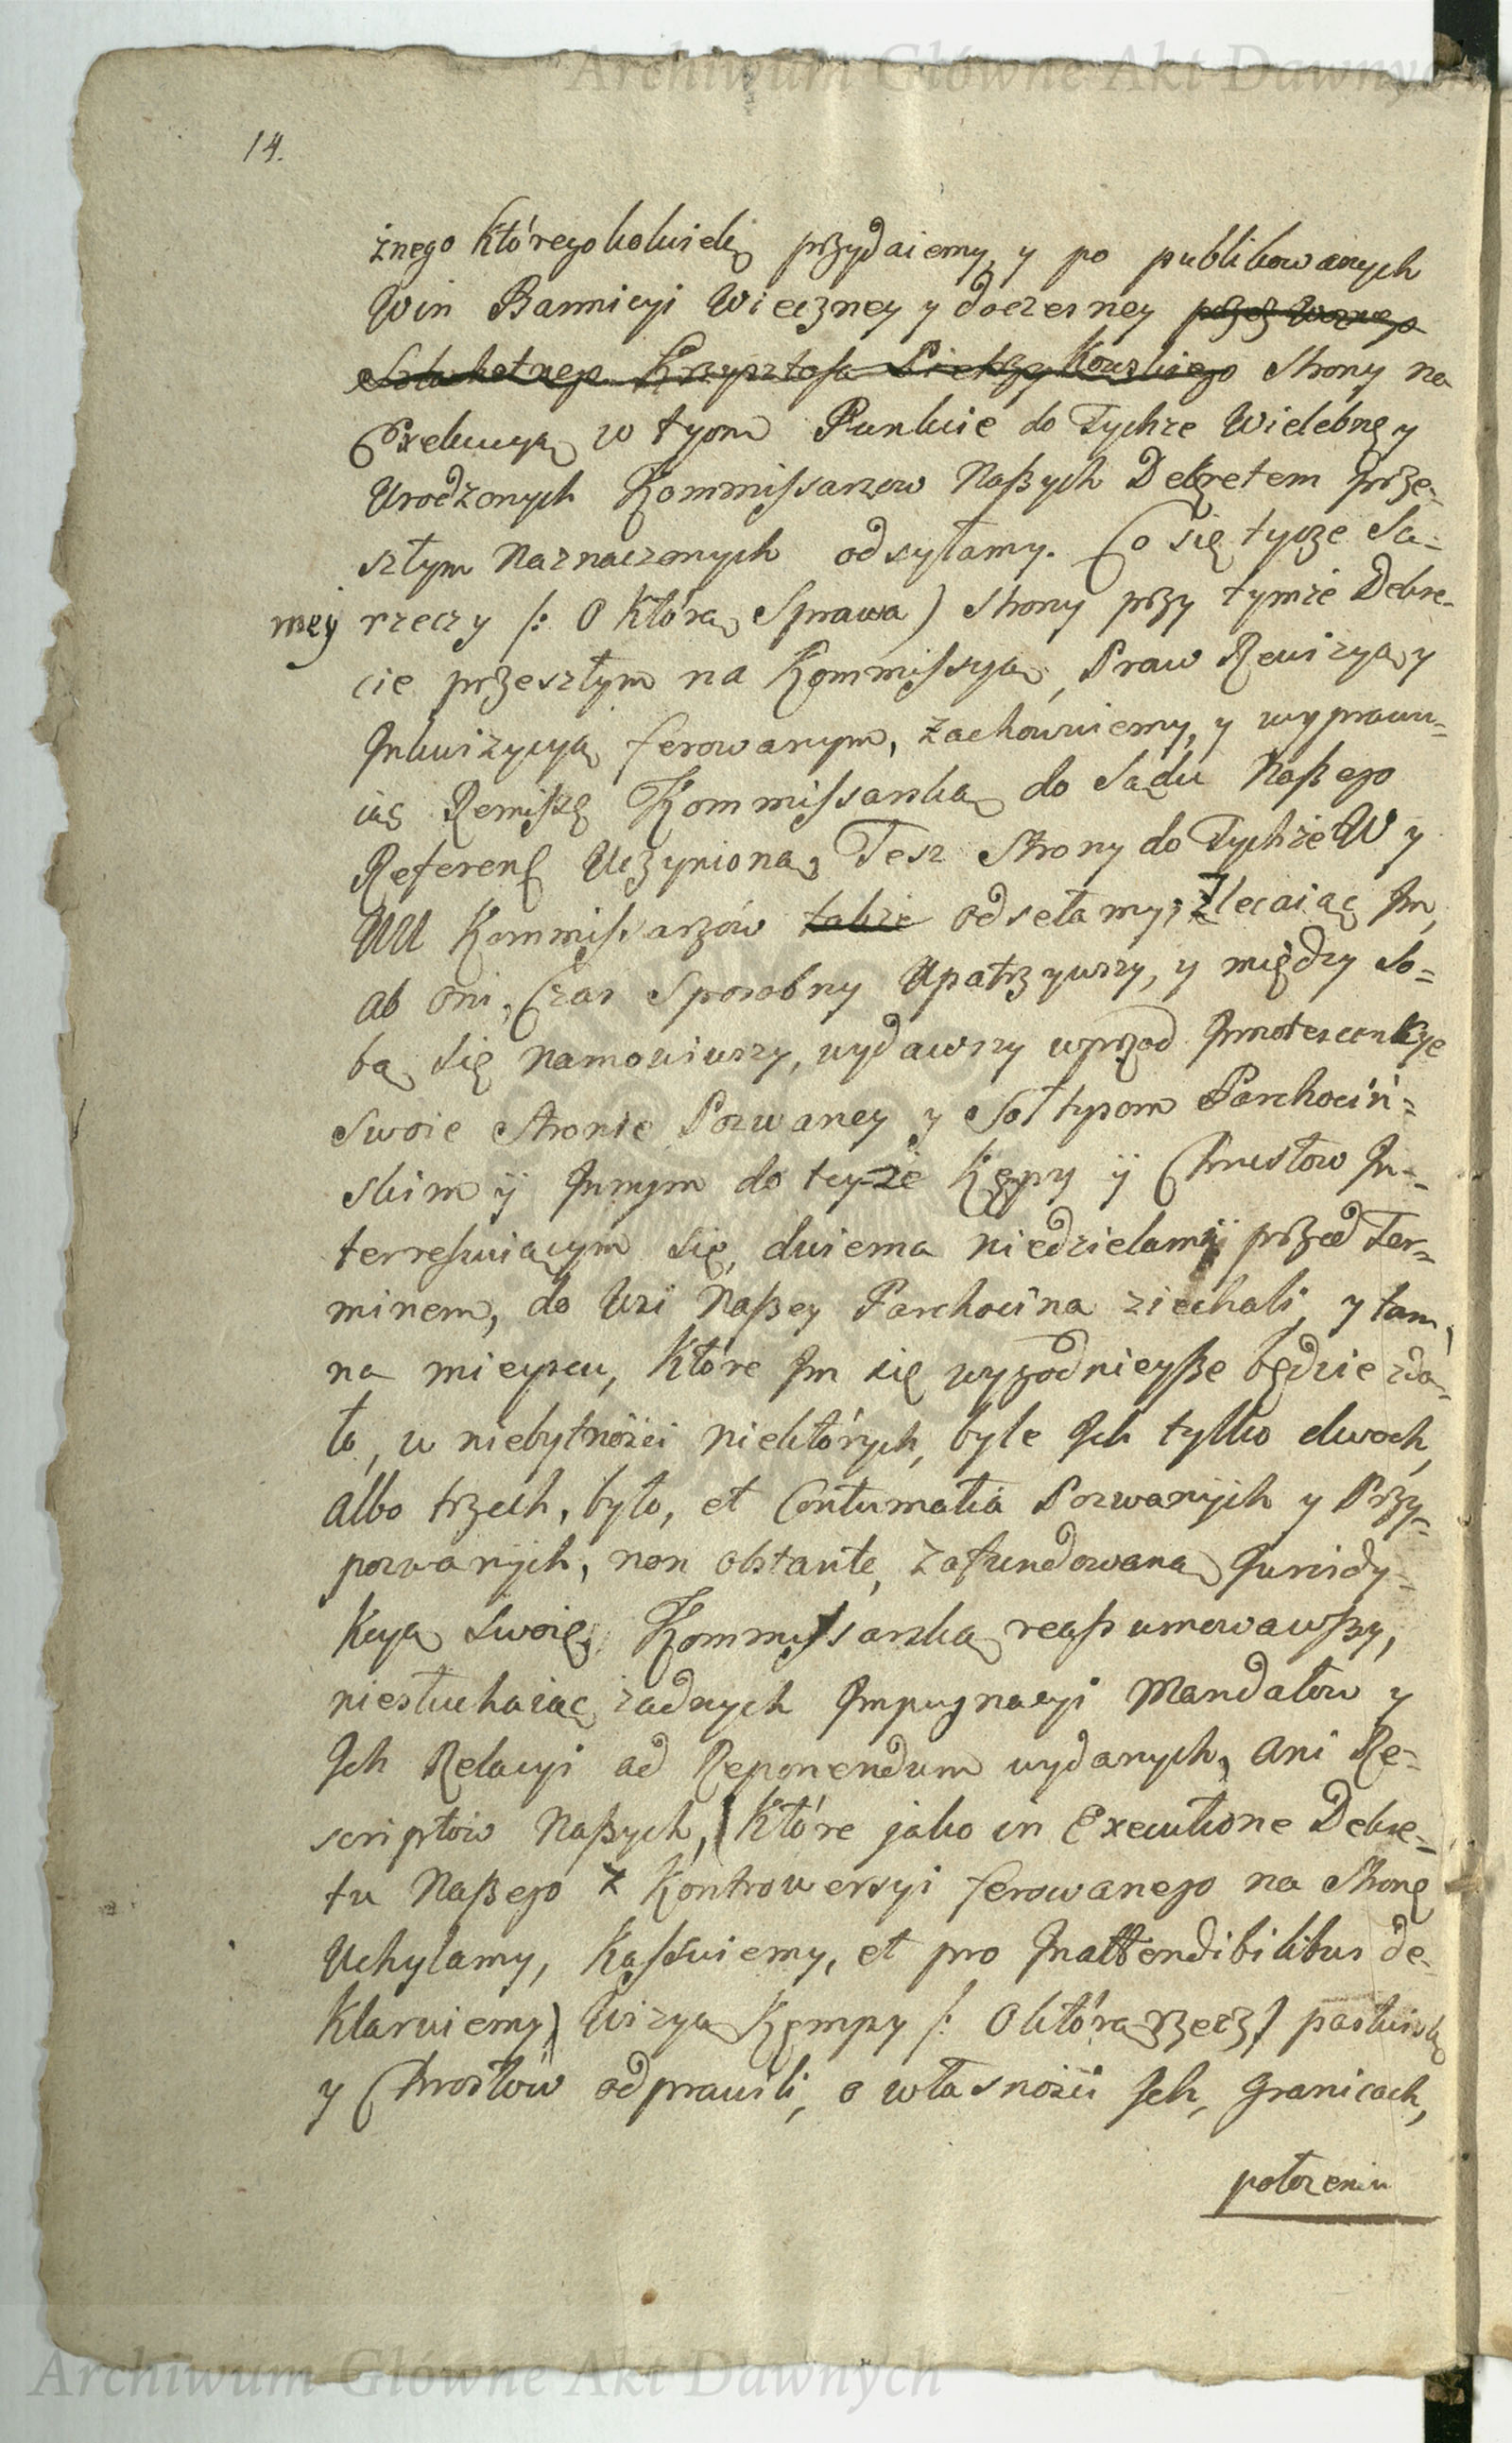 Archiwum Główne Akt Dawnych
14.
żnego któregokolwiek przydaiemy, y po publikowanych
Win Bannicyi Wieczney y doczesney przez Woznego
Szlachetnego Krzysztofa Piekrzykowskiego Strony na
Exekucyą w tym Punkcie do Tychże Wielebnę y
Urodzonych Kommissarzow Naszych Dekretem prze-
szłym Naznaczonych odsyłamy. Co się tycze Sa-
mey rzeczy /: O którą Sprawa) Strony przy tymże Dekre-
cie przeszłym na Kommissyą, Praw Rewizyą y
Inkwizycyą ferowanym, zachowuiemy, y wyprawu-
iąc Remissę Kommissarską do Sądu Naszego
Referen Uczynioną, Tesz Strony do Tychże W y
UU Kommissarzów także odsełamy, Zlecaiąc Im,
ab oni, Czas Sposobny Upatrzywszy, y między So-
bą się namowiwszy, wydawszy wprzod Innotescencye
Swoie Stronie Pozwaney y Sołtysom Parchociń-
skim ÿ Innym do teyże Kępy ÿ Chrustow In-
terressuiącym się, dwiema niedzielami przed Ter-
minem, do Wsi Naszey Parchocina ziechali, y tam,
na mieyscu, które Im się wygodnieysze będzie zda-
ło, w niebytności niektórych, byle Ich tylko dwoch,
albo trzech, było, et Contumatia Pozwanych y Przy-
pozwanych, non obstante, zafundowaną Jurisdy-
kcyą Swoię, Kommissarską reassumowawszy,
niesłuchaiąc żadnych Impugnacyi Mandatow y
Ich Relacyi ad Reponendum wydanych, ani Re-
scriptów Naszych, (które jako in Executione Dekre-
tu Naszego z Kontrowersyi ferowanego na Stronę
Uchylamy, Kassuiemy, et pro Inattendibilibus de-
klaruiemy) Wizyą Kempy /: O którą rzecz) pastwisk
y Chrostów odprawili, o własności Ich, Granicach,
położeniu
Archiwum Główne Akt Dawnych